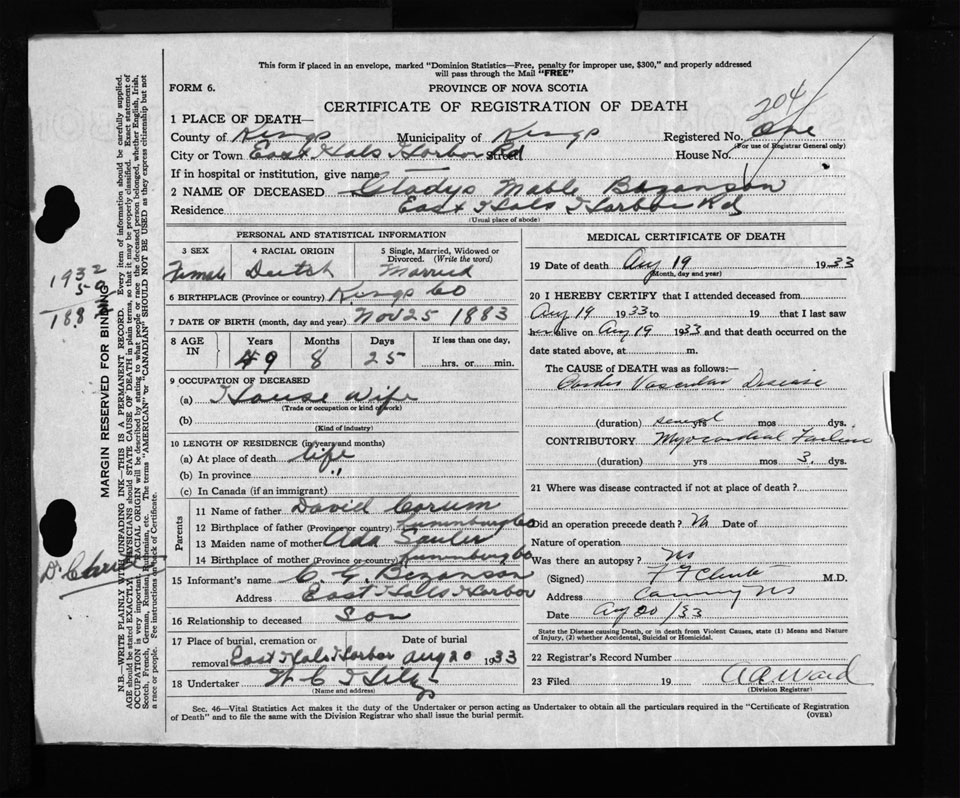 This form if placed in an envelope, marked "Dominion Statistics—Free, penalty for improper use, $300," and properly addressed
will pass through the Mail "FREE"
FORM 6.
PROVINCE OF NOVA SCOTIA
CERTIFICATE OF REGISTRATION OF DEATH
204
1 PLACE OF DEATH—
County of Kings Municipality of Kings Registered No. One
(For use of Registrar General only)
City or Town East Hals Harbor Rd Street House No.
If in hospital or institution, give name
2 NAME OF DECEASED Gladys Mable Bezanson
Residence East Hals Harbor Rd
(Usual place of abode)
PERSONAL AND STATISTICAL INFORMATION
3 SEX 4 RACIAL ORIGIN 5 Single, Married, Widowed or Divorced. (Write the word)
Female Deutch Married
6 BIRTHPLACE (Province or country) Kings Co
7 DATE OF BIRTH (month, day and year) Nov 25 1883
8 AGE IN Years Months Days If less than one day,
49 8 25 hrs. or min.
9 OCCUPATION OF DECEASED
(a) House Wife
(Trade or occupation or kind of work)
(b)
(Kind of industry)
10 LENGTH OF RESIDENCE (in years and months)
(a) At place of death life
(b) In province "
(c) In Canada (if an immigrant)
Parents
11 Name of father David Corum
12 Birthplace of father (Province or country) Lunenburg Co
13 Maiden name of mother Ada
14 Birthplace of mother (Province or country) Lunenburg Co
15 Informant's name C. G. Bezanson
Address East Halls Harbor
16 Relationship to deceased Son
17 Place of burial, cremation or removal Date of burial
East Hals Harbor Aug 20 1933
18 Undertaker W C
(Name and address)
MEDICAL CERTIFICATE OF DEATH
19 Date of death Aug 19 1933
(Month, day and year)
20 I HEREBY CERTIFY that I attended deceased from
Aug 19 1933 to 19 that I last saw
her alive on Aug 19 1933 and that death occurred on
date stated above, at m.
The CAUSE of DEATH was as follows:—
Cardio Vascular Disease
(duration) several yrs mos dys.
CONTRIBUTORY Myocardial Failure
(duration) yrs mos 3 dys.
21 Where was disease contracted if not at place of death?
Did an operation precede death? No Date of
Nature of operation
Was there an autopsy? No
(Signed) M.D.
Address Canning NS
Date Aug 20/33
State the Disease causing Death, or in death from Violent Causes, state (1) Means and Nature
of Injury, (2) whether Accidental, Suicidal or Homicidal.
22 Registrar's Record Number
23 Filed 19 A A Ward
(Division Registrar)
Sec. 46—Vital Statistics Act makes it the duty of the Undertaker or person acting as Undertaker to obtain all the particulars required in the "Certificate of Registration
of Death" and to file the same with the Division Registrar who shall issue the burial permit. (OVER)
MARGIN RESERVED FOR BINDING
N.B.—WRITE PLAINLY WITH UNFADING INK—THIS IS A PERMANENT RECORD. Every item of information should be carefully supplied.
AGE should be stated EXACTLY. PHYSICIANS should state CAUSE OF DEATH in plain terms, so that it may be properly classified. Exact statement of
OCCUPATION is very important. RACIAL ORIGIN will be described by stating to what people or race the deceased person belonged, whether English, Irish,
Scotch, French, German, Russian, Ruthenian, etc. The terms "AMERICAN" or "CANADIAN" SHOULD NOT BE USED as they express citizenship but not
a race or people. See instructions on back of Certificate.
1932